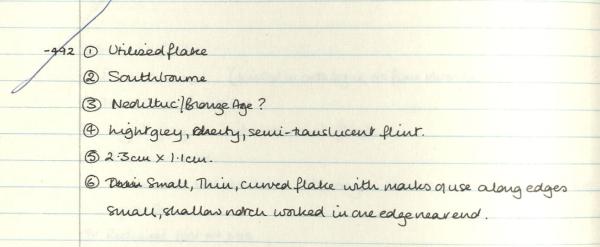 -442 ① Utilised flake
② Southbourne
③ Neolithic/Bronze Age ?
④ Light grey, cherty, semi-translucent flint.
⑤ 2.3cm x 1.1cm.
⑥ Small, Thin, curved flake with marks of use along edges
small, shallow notch worked in one edge near end.